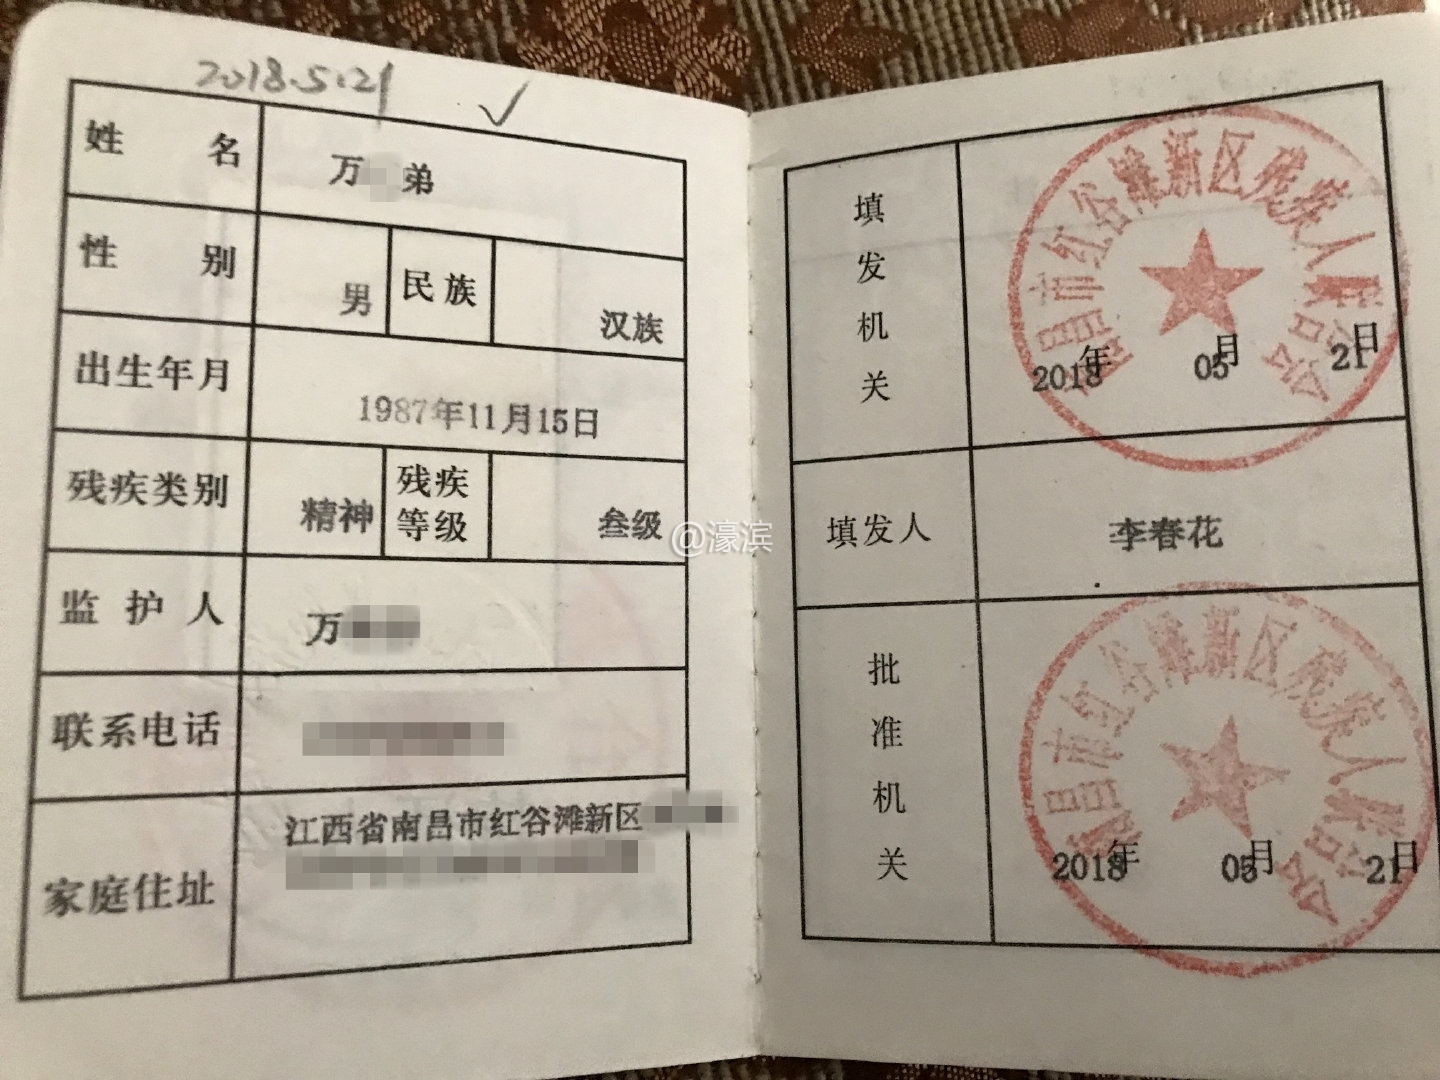 2018.5.21
姓名 万 弟
性别 男 民族 汉族
出生年月 1987年11月15日
残疾类别 精神 残疾等级 叁级
监护人 万
联系电话
家庭住址 江西省南昌市红谷滩新区
@濠滨
填发机关 南昌市红谷滩新区残疾人联合会
2018年05月21日
填发人 李春花
批准机关 南昌市红谷滩新区残疾人联合会
2018年05月21日